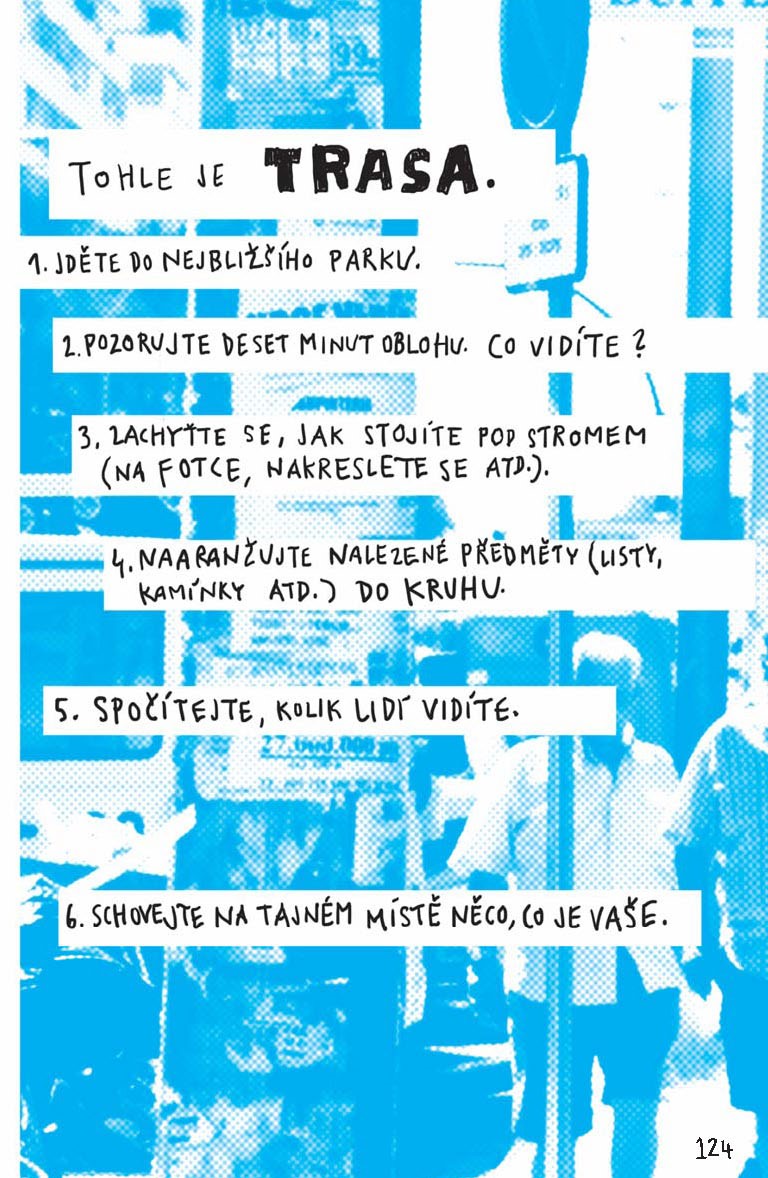 99
TOHLE JE TRASA.
1. JDĚTE DO NEJBLIŽŠÍHO PARKU.
2. POZORUJTE DESET MINUT OBLOHU. CO VIDÍTE?
3. ZACHYŤTE SE, JAK STOJÍTE POD STROMEM
(NA FOTCE, NAKRESLETE SE ATD.).
4. NAARANŽUJTE NALEZENÉ PŘEDMĚTY (LISTY,
KAMÍNKY ATD.) DO KRUHU.
5. SPOČÍTEJTE, KOLIK LIDÍ VIDÍTE.
27.000.000
6. SCHOVEJTE NA TAJNÉM MÍSTĚ NĚCO, CO JE VAŠE.
124